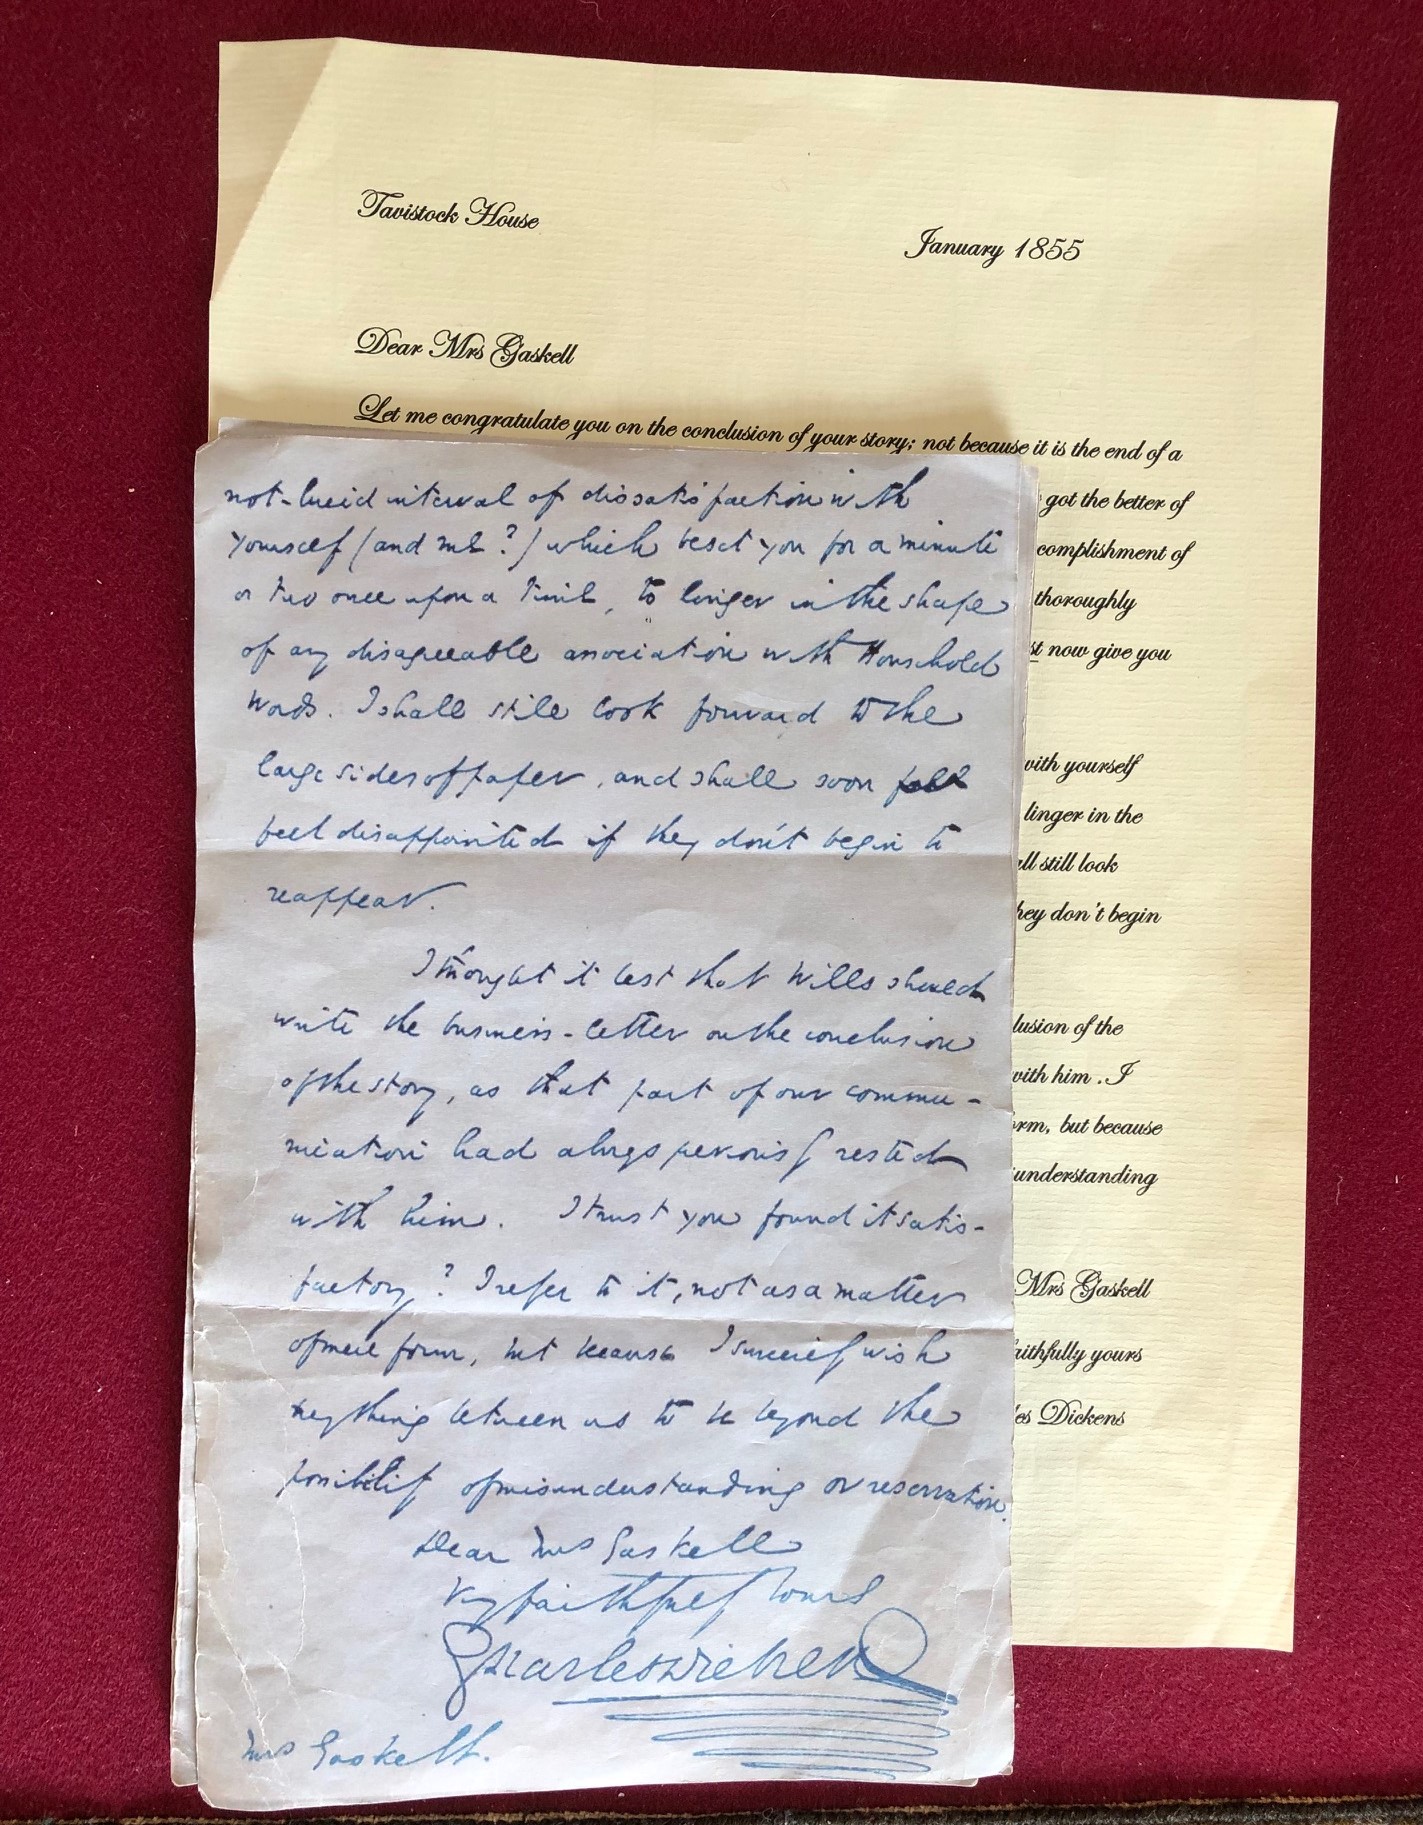 Tavistock House
January 1855
Dear Mrs Gaskell
Let me congratulate you on the conclusion of your story; not because it is the end of a
got the better of
complishment of
thoroughly
st now give you
with yourself
linger in the
ll still look
hey don't begin
lusion of the
with him . I
orm, but because
understanding
Mrs Gaskell
faithfully yours
les Dickens
not-lucid interval of dissatisfaction with
yourself (and me?) which beset you for a minute
or two once upon a time, to linger in the shape
of any disagreeable association with Household
Words. I shall still look forward to the
large sides of paper, and shall soon
feel disappointed if they don't begin to
reappear.
I thought it best that Wills should
write the business-letter on the conclusion
of the story, as that part of our commu-
nication had always previously rested
with him. I trust you found it satis-
factory? I refer to it, not as a matter
of mere form, but because I sincerely wish
everything between us to be beyond the
possibility of misunderstanding or reservation.
Dear Mrs Gaskell
Very faithfully Yours
Charles Dickens
Mrs Gaskell.